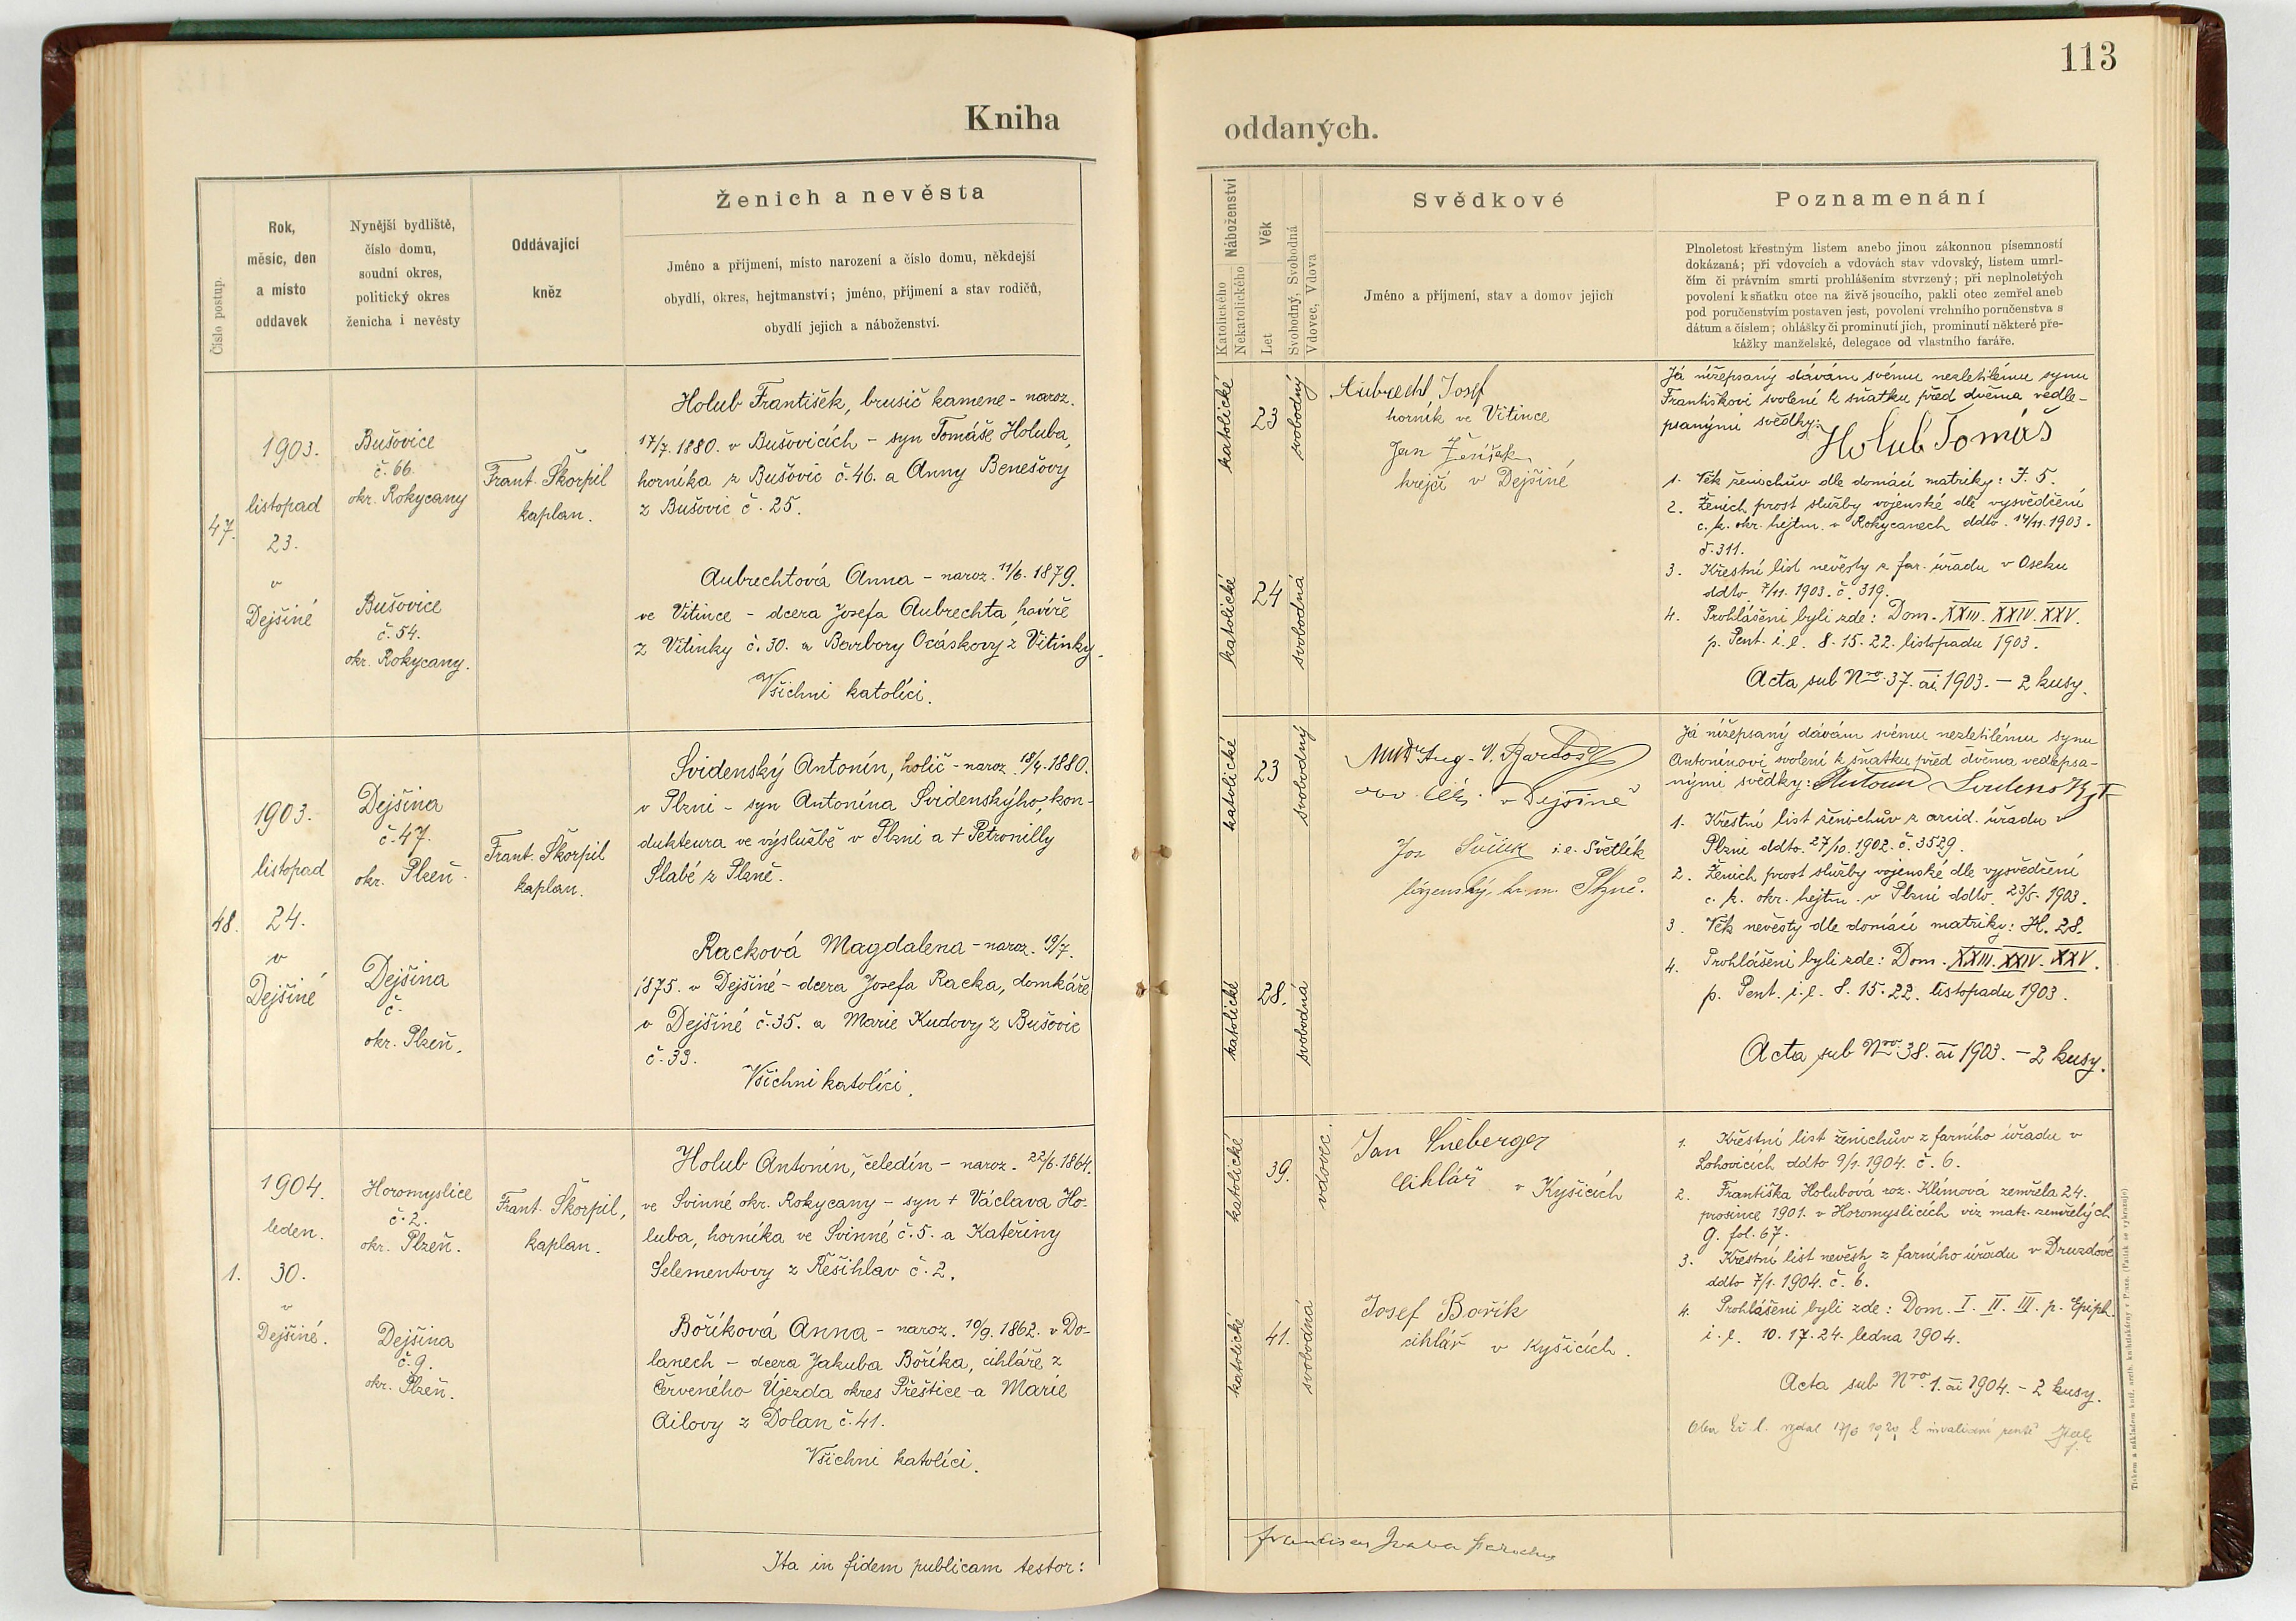 113
Kniha
oddaných.
Číslo postup.
Rok,
měsíc, den
a místo
oddavek
Nynější bydliště,
číslo domu,
soudní okres,
politický okres
ženicha i nevěsty
Oddávající
kněz
Ženich a nevěsta
Jméno a příjmení, místo narození a číslo domu, někdejší
obydlí, okres, hejtmanství; jméno, příjmení a stav rodičů,
obydlí jejich a náboženství.
47.
1903.
listopad
23.
v
Dejšině
Bušovice
č. 66.
okr. Rokycany
Bušovice
č. 54.
okr. Rokycany.
Frant. Škorpil
kaplan.
Holub František, brusič kamene - naroz.
17/7. 1880. v Bušovicích - syn Tomáše Holuba,
horníka z Bušovic č. 46. a Anny Benešovy
z Bušovic č. 25.
Aubrechtová Anna - naroz. 11/6. 1879.
ve Vitince - dcera Josefa Aubrechta, havíře
z Vitinky č. 30. a Barbory Ocáskovy z Vitinky.
Všichni katolíci.
48.
1903.
listopad
24.
v
Dejšině
Dejšina
č. 47.
okr. Plzeň.
Dejšina
č.
okr. Plzeň.
Frant. Škorpil
kaplan.
Svidenský Antonín, holič - naroz. 18/4. 1880.
v Plzni - syn Antonína Svidenskýho, kon-
dukteura ve výslužbě v Plzni a + Petronilly
Slabé z Plzně.
Racková Magdalena - naroz. 19/7.
1875. v Dejšině - dcera Josefa Racka, domkáře
v Dejšině č. 35. a Marie Kudovy z Bušovic
č. 33.
Všichni katolíci.
1.
1904.
leden.
30.
v
Dejšině.
Horomyslice
č. 2.
okr. Plzeň.
Dejšina
č. 9.
okr. Plzeň.
Frant. Škorpil,
kaplan.
Holub Antonín, čeledín - naroz. 22/6. 1864.
ve Svinné okr. Rokycany - syn + Václava Ho-
luba, horníka ve Svinné č. 5. a Kateřiny
Selementovy z Řešihlav č. 2.
Boříková Anna - naroz. 10/9. 1862. v Do-
lanech - dcera Jakuba Boříka, cihláře z
Červeného Újezda okres Přeštice a Marie
Ailovy z Dolan č. 41.
Všichni katolíci.
Ita in fidem publicam testor:
Náboženství
Katolického
Nekatolického
Věk
Let
Svobodný, Svobodná
Vdovec, Vdova
Svědkové
Jméno a příjmení, stav a domov jejich
Poznamenání
Plnoletost křestným listem anebo jinou zákonnou písemností
dokázaná; při vdovcích a vdovách stav vdovský, listem úmrt-
čím či právním smrti prohlášením stvrzený; při neplnoletých
povolení k sňatku otce na živě jsoucího, pakli otec zemřel aneb
pod poručenstvím postaven jest, povolení vrchního poručenstva s
dátum a číslem; ohlášky či prominutí jich, prominutí některé pře-
kážky manželské, delegace od vlastního faráře.
katolické
23
svobodný
katolické
24
svobodná
Aubrecht Josef
horník ve Vitince
Jan
krejčí v Dejšině
Já nížepsaný dávám svému nezletilému synu
Františkovi svolení k sňatku před dvěma vedle-
psanými svědky:
Holub Tomáš
1. Věk ženichův dle domácí matriky: F. 5.
2. Ženich prost služby vojenské dle vysvědčení
c. k. okr. hejtm. v Rokycanech ddto. 14/11. 1903.
č. 311.
3. Křestní list nevěsty z far. úřadu v Oseku
ddto. 7/11. 1903. č. 319.
4. Prohlášeni byli zde: Dom. XXIII. XXIV. XXV.
p. Pent. i. e. 8. 15. 22. listopadu 1903.
Acta sub Nro. 37. ai 1903. - 2 kusy.
katolické
23
svobodný
katolické
28.
svobodná
MUDr Aug. V.
v Dejšině
Jos i.e. Světlík
lázenský
Já nížepsaný dávám svému nezletilému synu
Antonínovi svolení k sňatku před dvěma vedlepsa-
nými svědky: Antonín
1. Křestní list ženichův z arcid. úřadu v
Plzni ddto. 27/10. 1902. č. 3529.
2. Ženich prost služby vojenské dle vysvědčení
c. k. okr. hejtm. v Plzni ddto. 23/5. 1903.
3. Věk nevěsty dle domácí matriky: H. 28.
4. Prohlášeni byli zde: Dom. XXIII. XXIV. XXV.
p. Pent. i. e. 8. 15. 22. listopadu 1903.
Acta sub Nro. 38. ai 1903. - 2 kusy.
katolické
39.
vdovec.
katolické
41.
svobodná
Jan Šneberger
Cihlář v Kyšicích
Josef Bořík
cihlář v Kyšicích.
1. Křestní list ženichův z farního úřadu v
Lohovicích ddto 9/1. 1904. č. 6.
2. Františka Holubová roz. Klímová zemřela 24.
prosince 1901. v Horomyslicích viz matr. zemřelých
G. fol. 67.
3. Křestní list nevěsty z farního úřadu v Druzdové
ddto 7/1. 1904. č. 6.
4. Prohlášeni byli zde: Dom. I. II. III. p. Epiph.
i. e. 10. 17. 24. ledna 1904.
Acta sub Nro. 1. ai 1904. - 2 kusy.
vydal 17/6 1929 k invalidní rentě